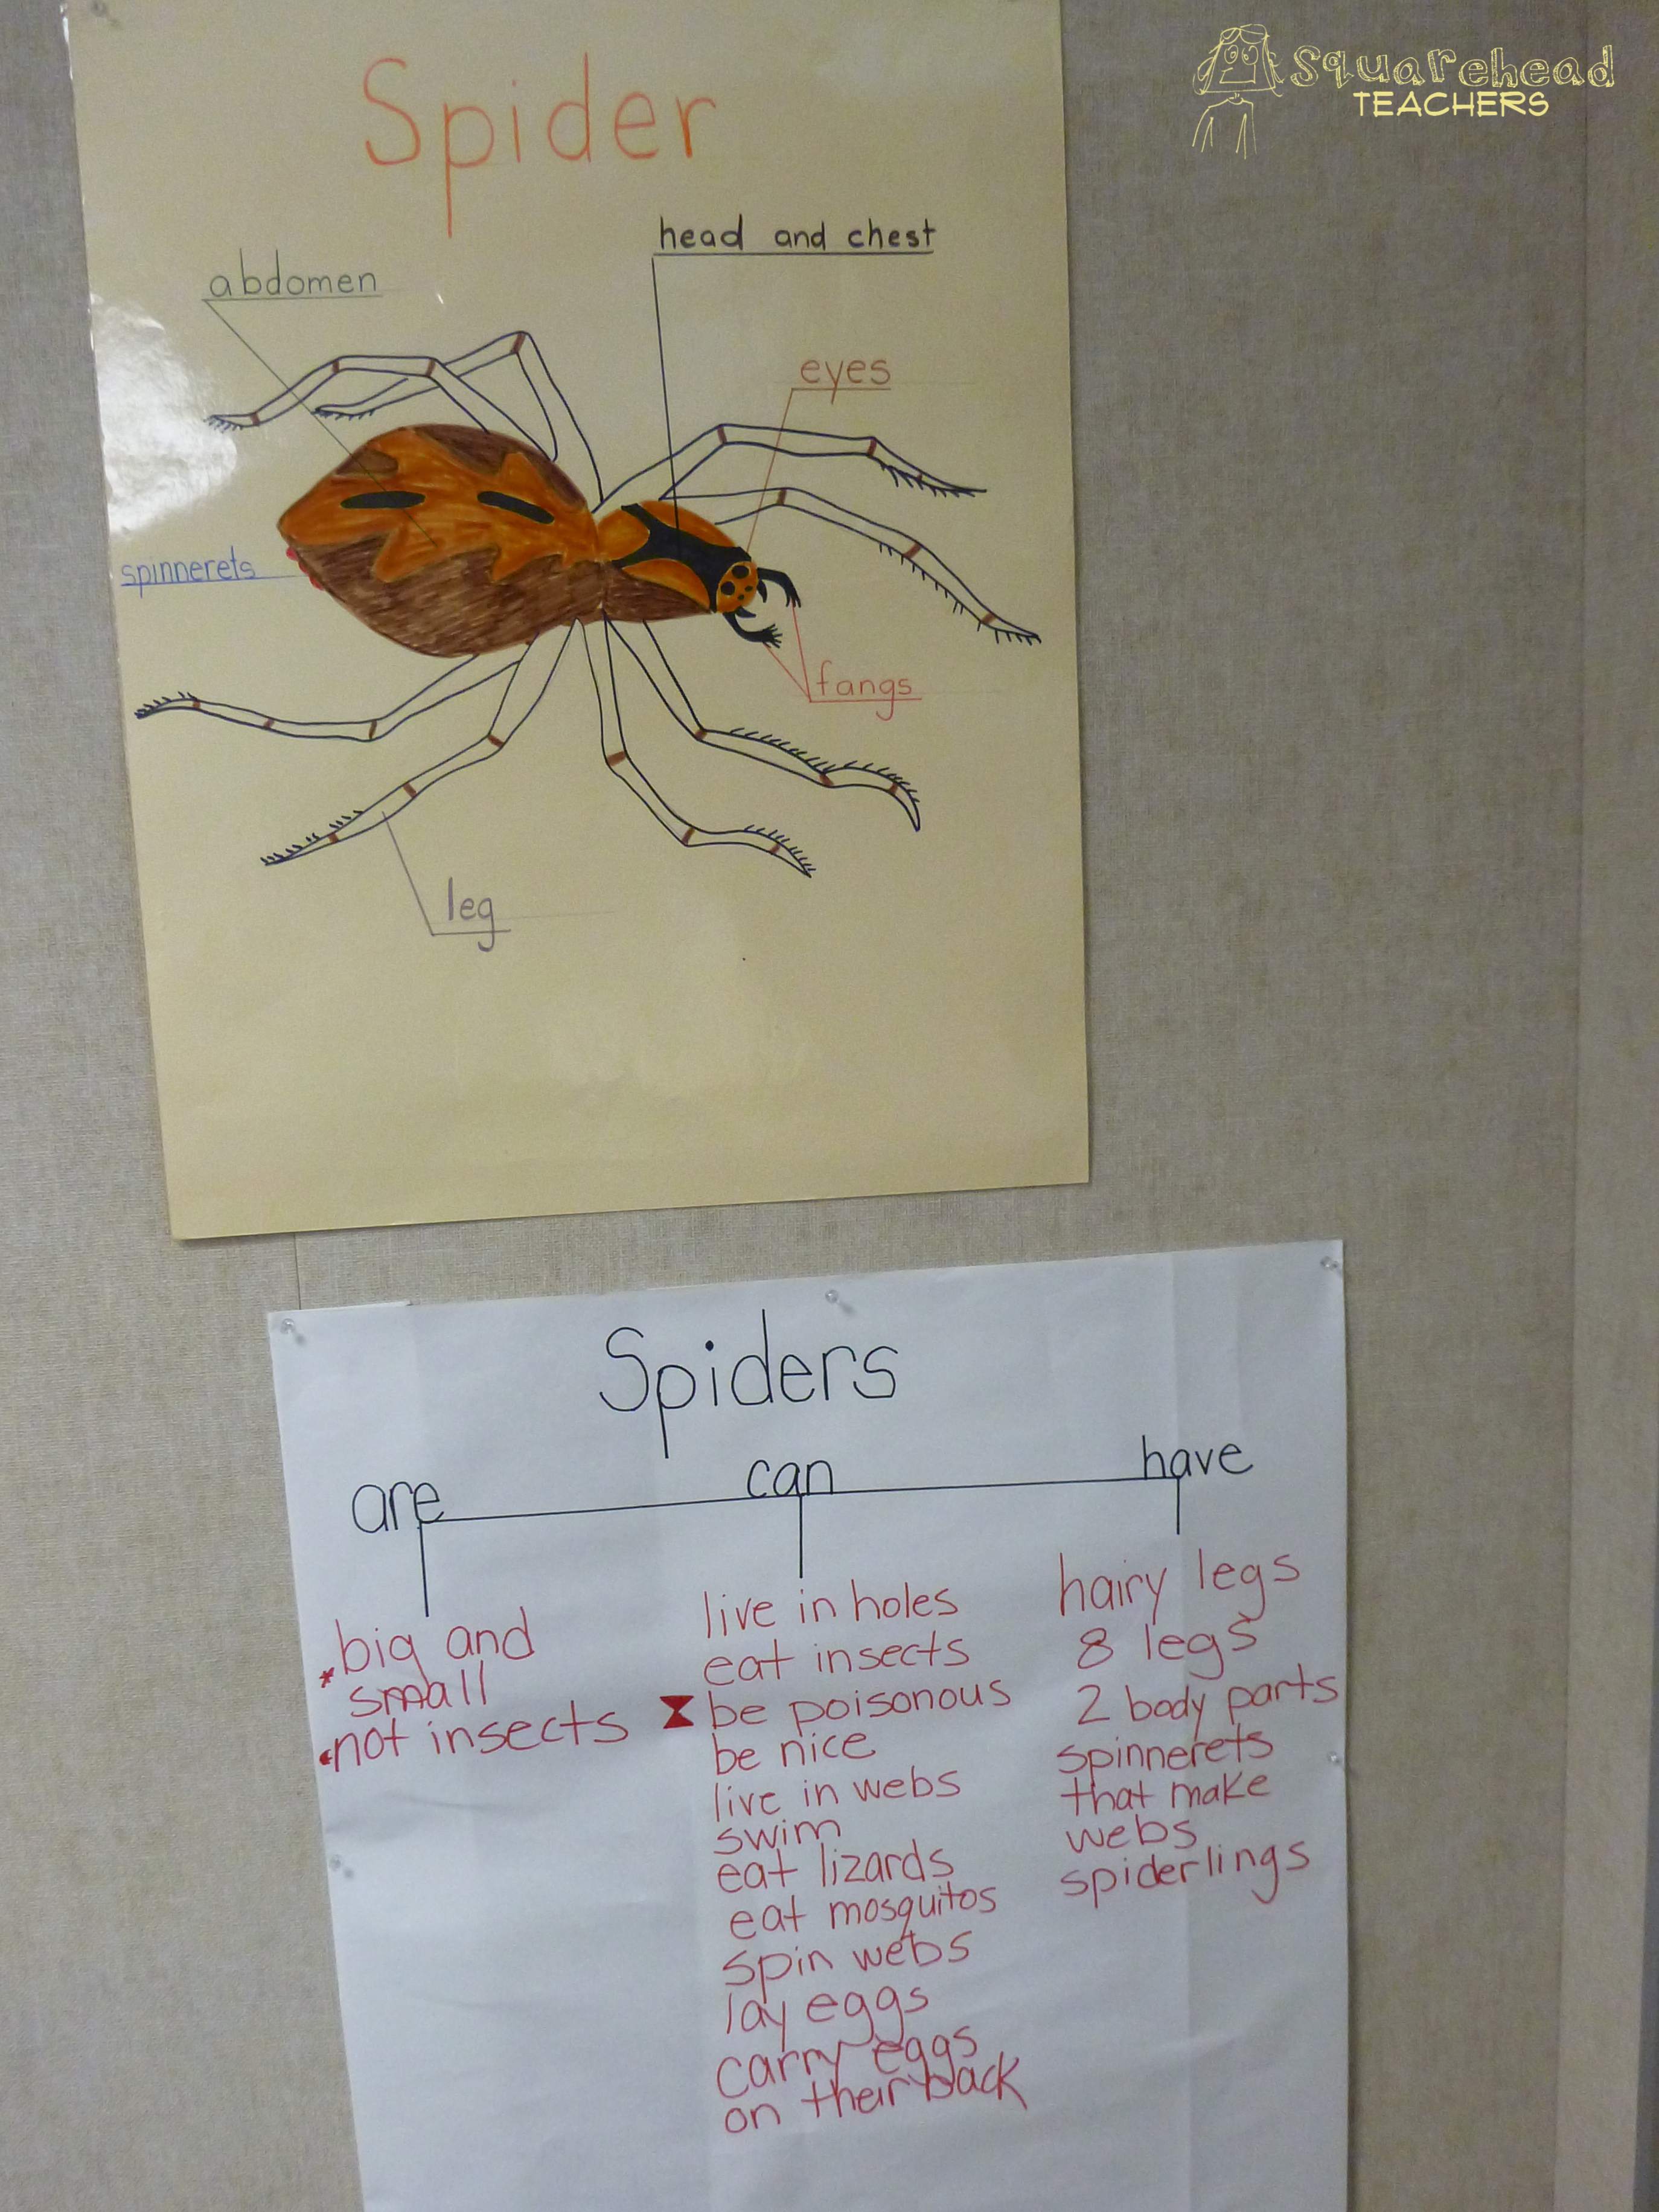 Squarehead
TEACHERS
Spider
head and chest
abdomen
eyes
spinnerets
fangs
leg
Spiders
are
big and
small
not insects
can
live in holes
eat insects
be poisonous
be nice
live in webs
swim
eat lizards
eat mosquitos
spin webs
lay eggs
carry eggs
on their back
have
hairy legs
8 legs
2 body parts
spinnerets
that make
webs
spiderlings